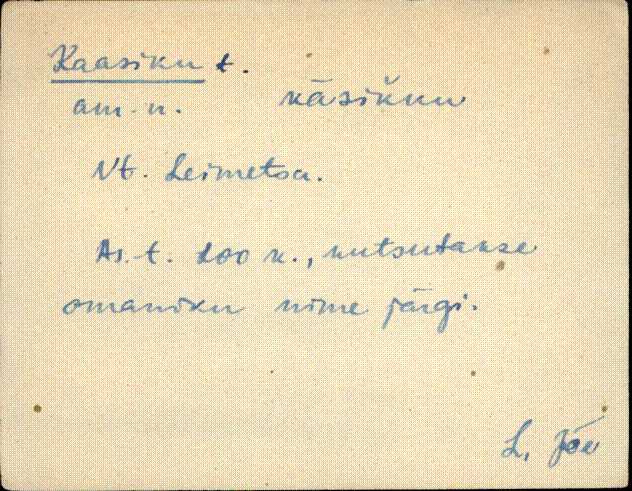 Kaasiku t.
am. n. kāsik̆ku
Vt. Leimetsa.
As. t. Loo k., kutsutakse
omaniku nime järgi.
L. Jõe